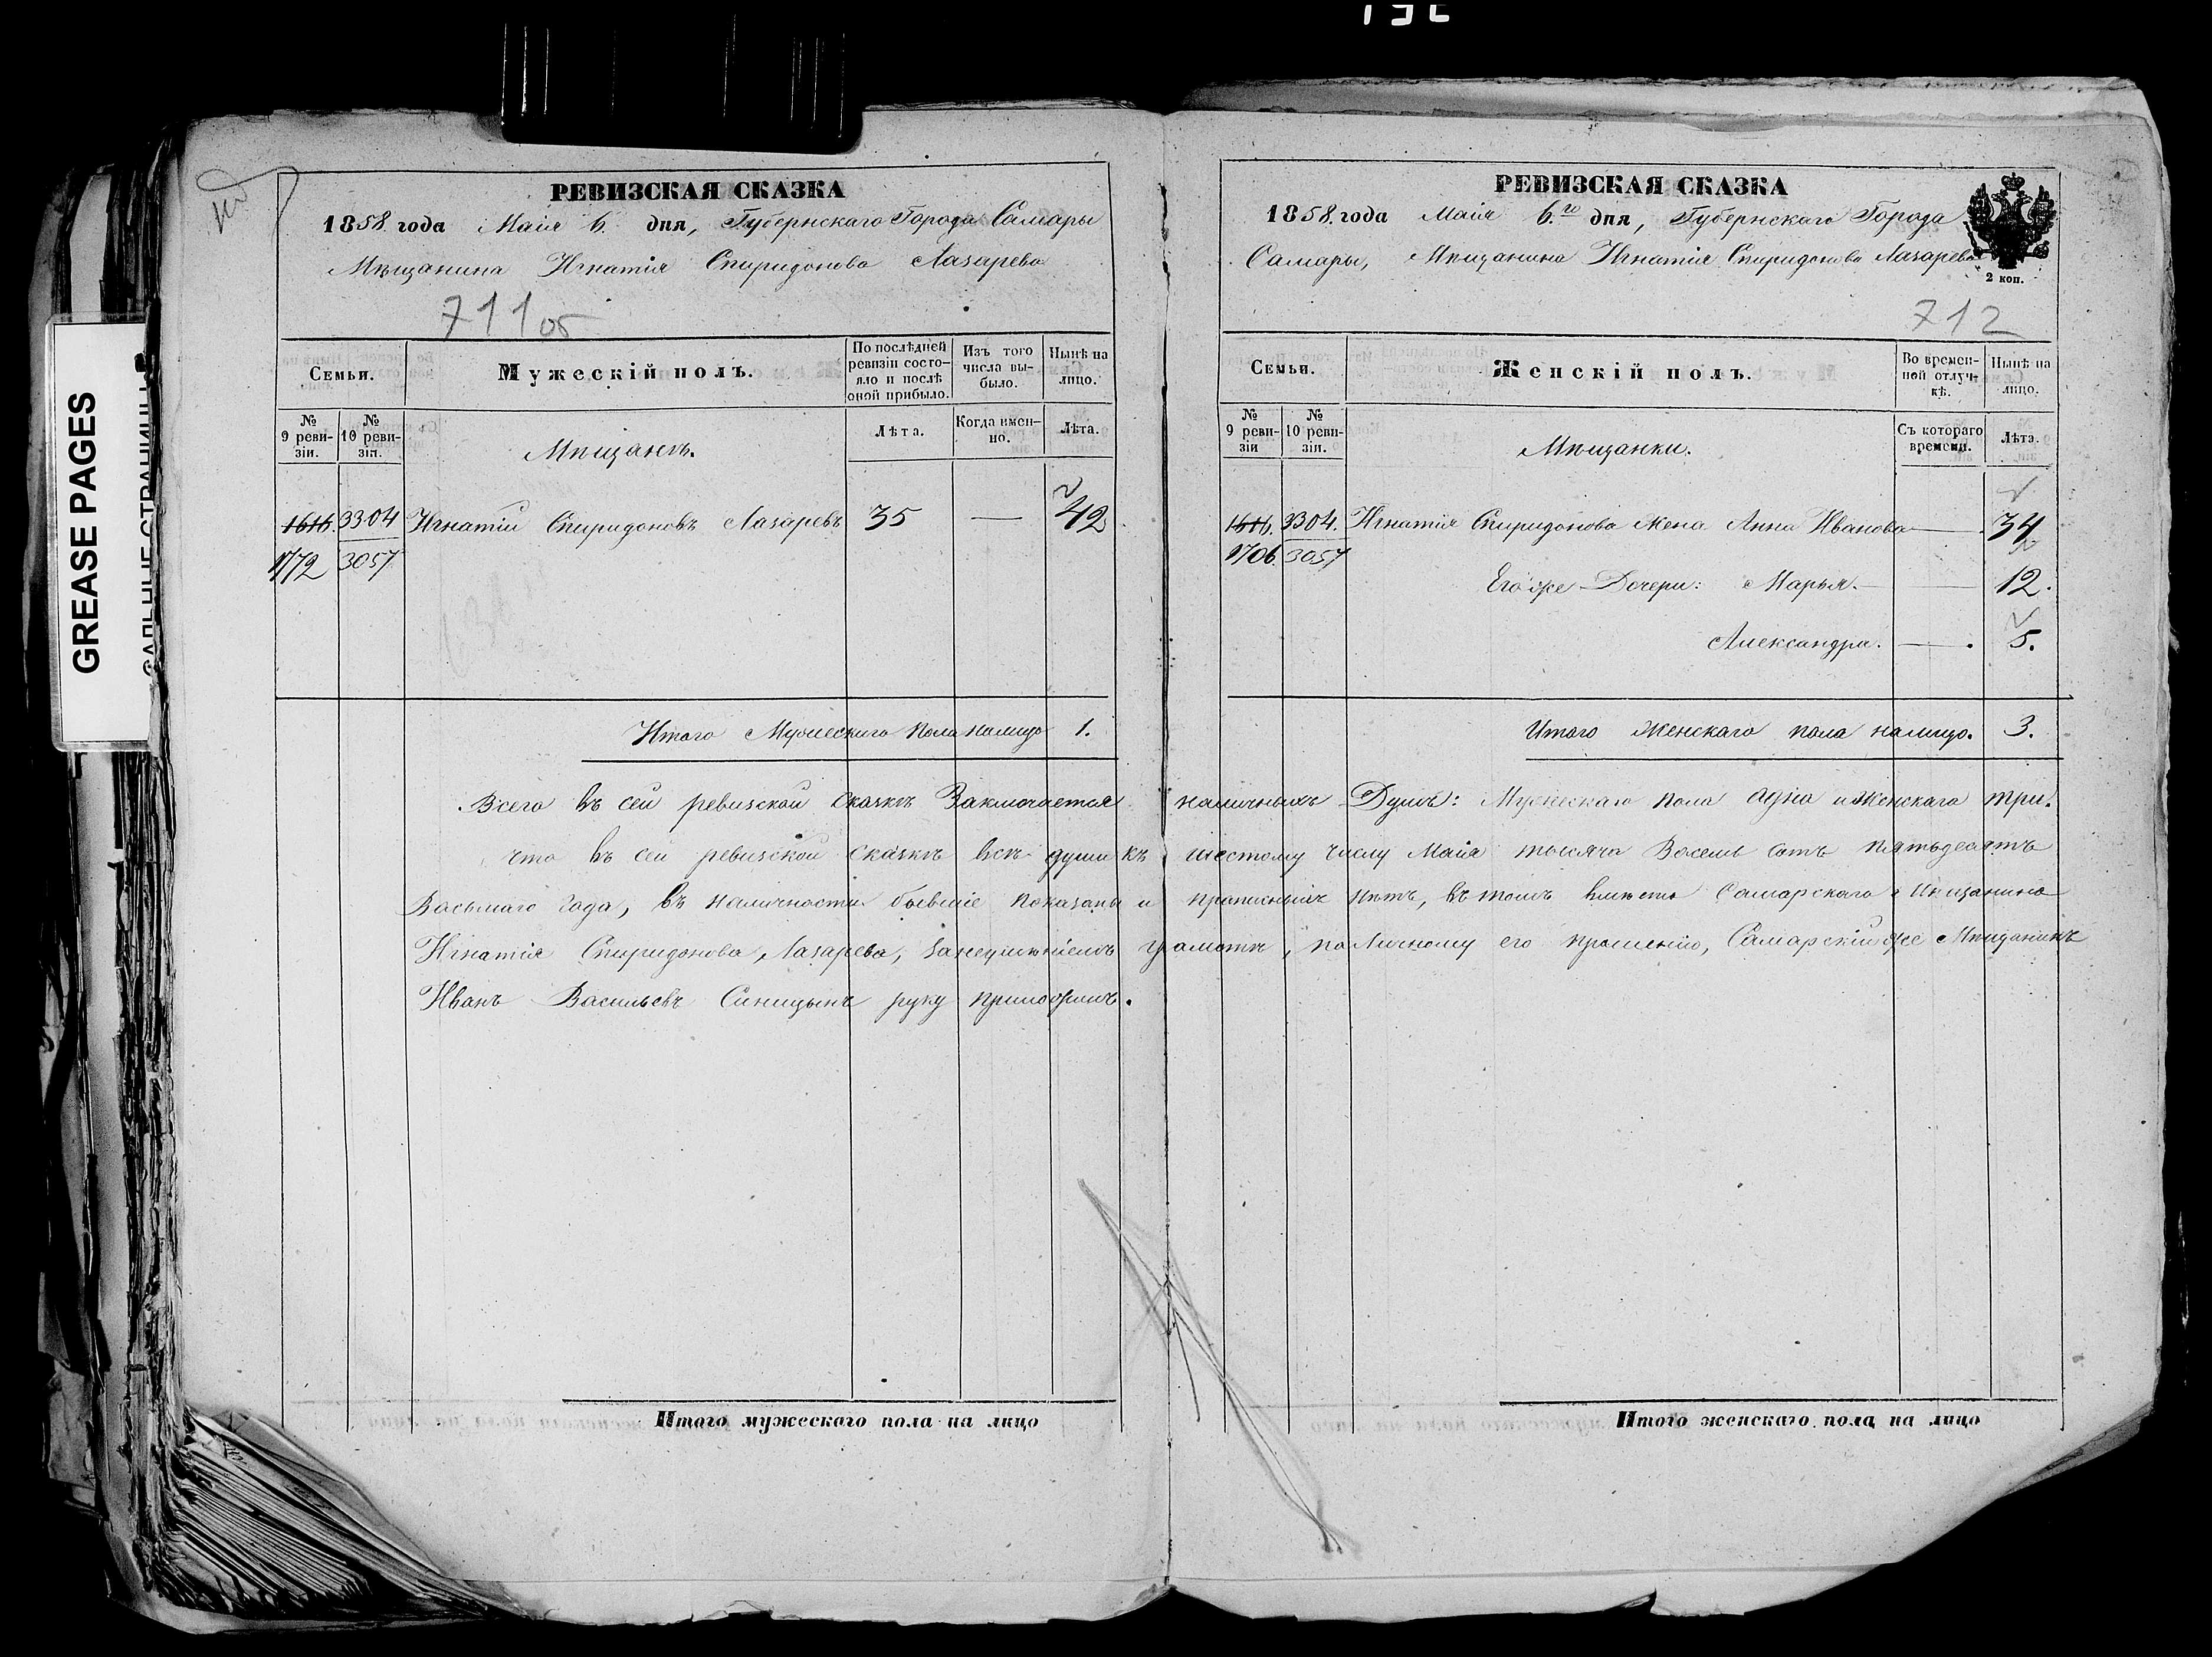 GREASE PAGES
РЕВИЗСКАЯ СКАЗКА
1858 года Маія 6. дня, Губернскаго Города Самары
Мѣщанина Игнатія Спиридонова Лазарева
711 об
Семьи.
Мужескій полъ.
По послѣдней ревизіи состояло и послѣ оной прибыло.
Изъ того числа выбыло.
Нынѣ на лицо.
№ 9 ревизіи.
№ 10 ревизіи.
Мѣщанъ.
Лѣта.
Когда именно.
Лѣта.
1616. 3304 Игнатій Спиридоновъ Лазаревъ 35 — 42
1772 3057
Итого Мужескаго пола налицо 1.
РЕВИЗСКАЯ СКАЗКА
1858 года Маія 6.го дня, Губернскаго Города
Самары, Мѣщанина Игнатія Спиридонова Лазарева
2 коп.
712
Семьи.
Женскій полъ.
Во временной отлучкѣ.
Нынѣ на лицо.
№ 9 ревизіи
№ 10 ревизіи.
Мѣщанки.
Съ котораго времени.
Лѣта.
1616. 3304. Игнатія Спиридонова Жена Анна Иванова — 34
1706. 3057
Его же Дочери: Марья. — 12.
Александра. — 5.
Итого Женскаго пола налицо. 3.
Всего въ сей ревизской сказкѣ Заключается наличныхъ Душъ: Мужескаго пола адна и Женскаго три.
что въ сей ревизской сказкѣ всѣ души къ шестому числу Маія тысяча Восемь сотъ пятьдесятъ
Восьмаго Года, въ наличности бывшіе показаны и прописныхъ нѣтъ, въ томъ вмѣсто Самарскаго Мѣщанина
Игнатія Спиридонова Лазарева, занеумѣніемъ грамотѣ, по Личному его прошенію, Самарскій же Мѣщанинъ
Иванъ Васильевъ Синицынъ руку приложилъ.
Итого мужескаго пола на лицо
Итого женскаго пола на лицо